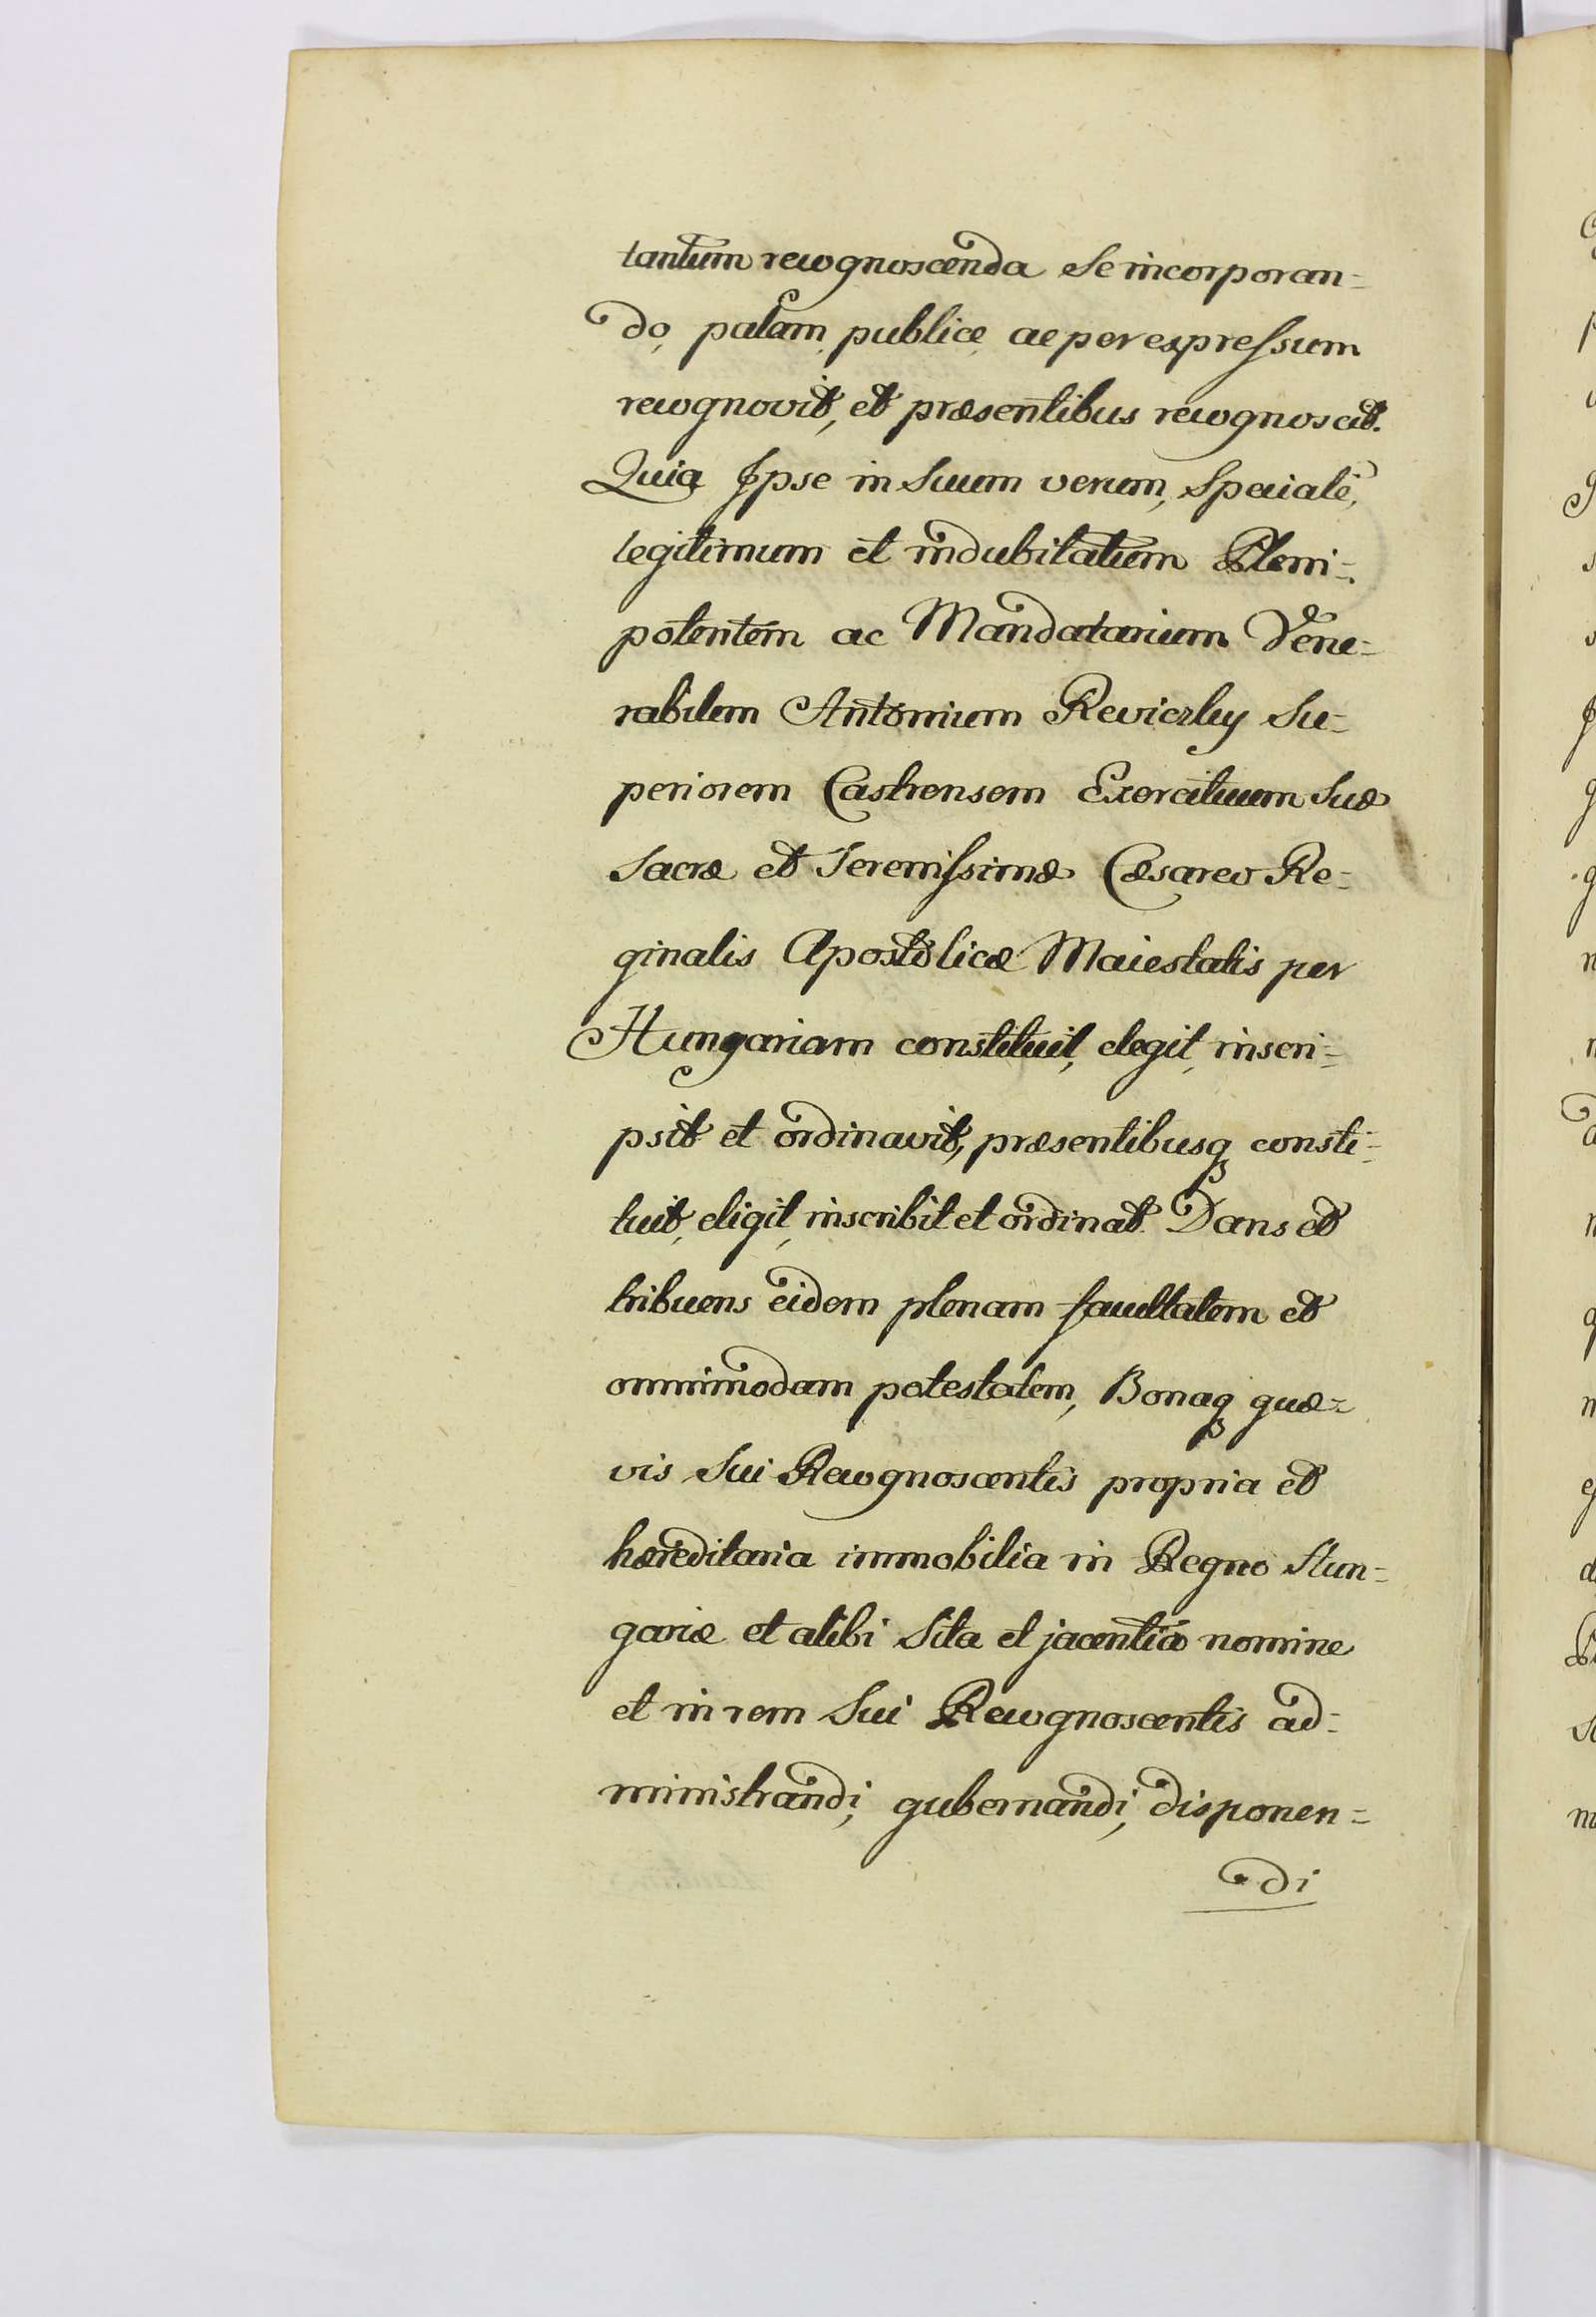 tantum recognoscenda Se incorporan=
do, palam, publice, ac per expressum
recognovit, et præsentibus recognoscit.
Quia Ipse in Suum verum, Specialē,
legitimum et indubitatum Pleni=
potentem ac Mandatarium Vene=
rabilem Antonium Reviczky Su=
periorem Castrensem Exercituum Suæ
Sacræ et Serenissimæ Cæsareo Re=
ginalis Apostolicæ Maiestatis per
Hungariam constituit, elegit, inscri=
psit et ordinavit, præsentibusq consti=
tuit, eligit, inscribit et ordinat. Dans et
tribuens eidem plenam facultatem et
omnimodam potestatem, Bonaq quæ=
vis Sui Recognoscentis propria et
hæreditaria immobilia in Regno Hun=
gariæ et alibi Sita et jacentia nomine
et in rem Sui Recognoscentis ad=
ministrandi, gubernandi, disponen=
di